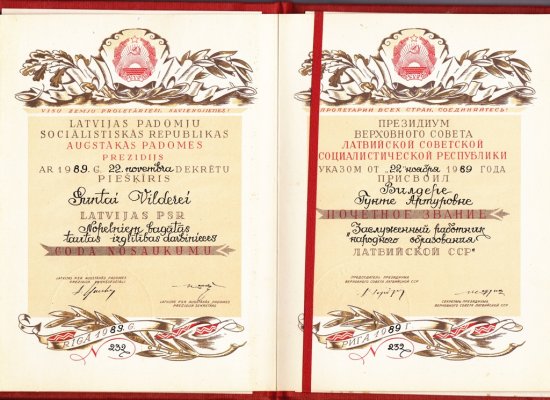 VISU ZEMJU PROLETĀRIEŠI, SAVIENOJIETIES!
LATVIJAS PADOMJU
SOCIĀLISTISKĀS REPUBLIKAS
AUGSTĀKĀS PADOMES
PREZIDIJS
AR 1989. G. 22. novembra DEKRĒTU
PIEŠĶĪRIS
Guntai Vilderei
LATVIJAS PSR
Nopelniem bagātās
tautas izglītības darbinieces
GODA NOSAUKUMU
LATVIJAS PSR AUGSTĀKĀS PADOMES
PREZIDIJA PRIEKŠSĒDĒTĀJS
LATVIJAS PSR AUGSTĀKĀS PADOMES
PREZIDIJA SEKRETĀRS
RĪGĀ 1989. G.
N 232
ПРОЛЕТАРИИ ВСЕХ СТРАН, СОЕДИНЯЙТЕСЬ!
ПРЕЗИДИУМ
ВЕРХОВНОГО СОВЕТА
ЛАТВИЙСКОЙ СОВЕТСКОЙ
СОЦИАЛИСТИЧЕСКОЙ РЕСПУБЛИКИ
УКАЗОМ ОТ "22" ноября 1989 ГОДА
ПРИСВОИЛ
Вилдере
Гунте Артуровне
ПОЧЕТНОЕ ЗВАНИЕ
"Заслуженный работник
народного образования
ЛАТВИЙСКОЙ ССР"
ПРЕДСЕДАТЕЛЬ ПРЕЗИДИУМА
ВЕРХОВНОГО СОВЕТА ЛАТВИЙСКОЙ ССР
СЕКРЕТАРЬ ПРЕЗИДИУМА
ВЕРХОВНОГО СОВЕТА ЛАТВИЙСКОЙ ССР
РИГА 1989 Г.
N 232